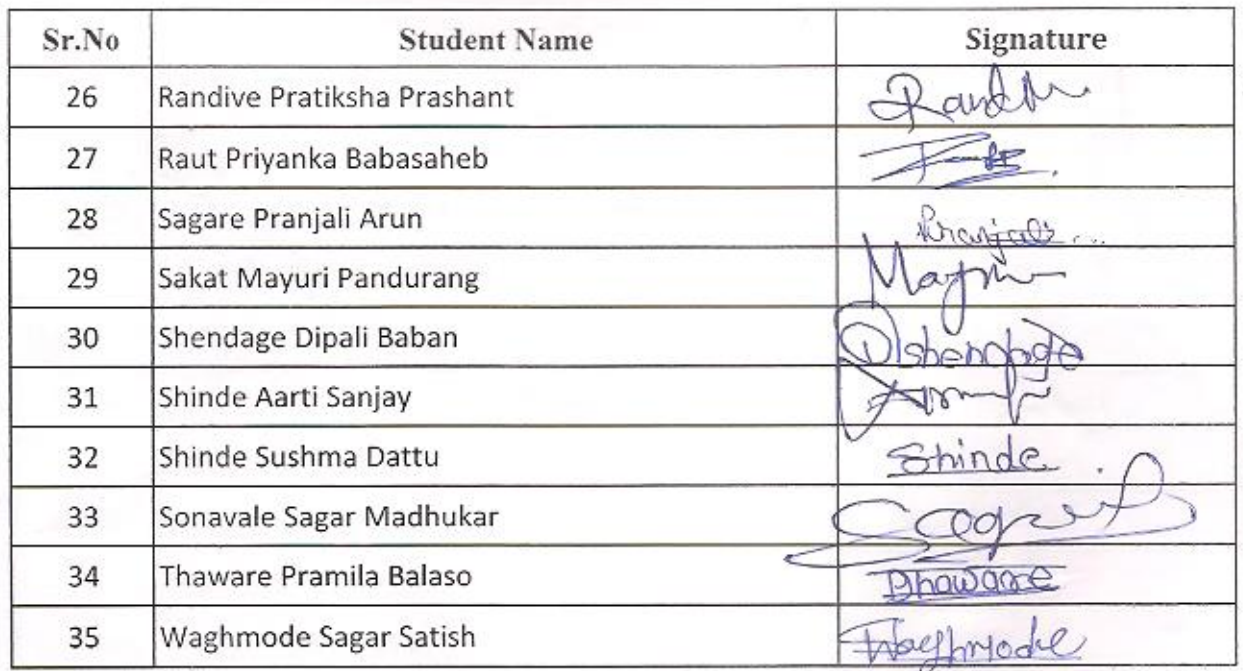 Sr.No Student Name Signature
26 Randive Pratiksha Prashant
27 Raut Priyanka Babasaheb
28 Sagare Pranjali Arun Pranjali...
29 Sakat Mayuri Pandurang
30 Shendage Dipali Baban Dishendage
31 Shinde Aarti Sanjay
32 Shinde Sushma Dattu Shinde
33 Sonavale Sagar Madhukar
34 Thaware Pramila Balaso Dhaware
35 Waghmode Sagar Satish Waghmode